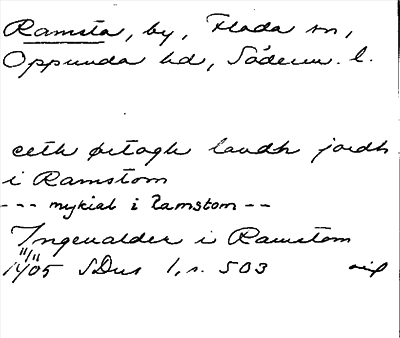 Ramsta, by, Floda sn,
Oppunda hd, Söderm. l.
eeth ørtogh landh jordh
i Ramstom
--- mykial i Ramstom --
Ingeualder i Ramstom
11/11
1405 SDns 1, s. 503